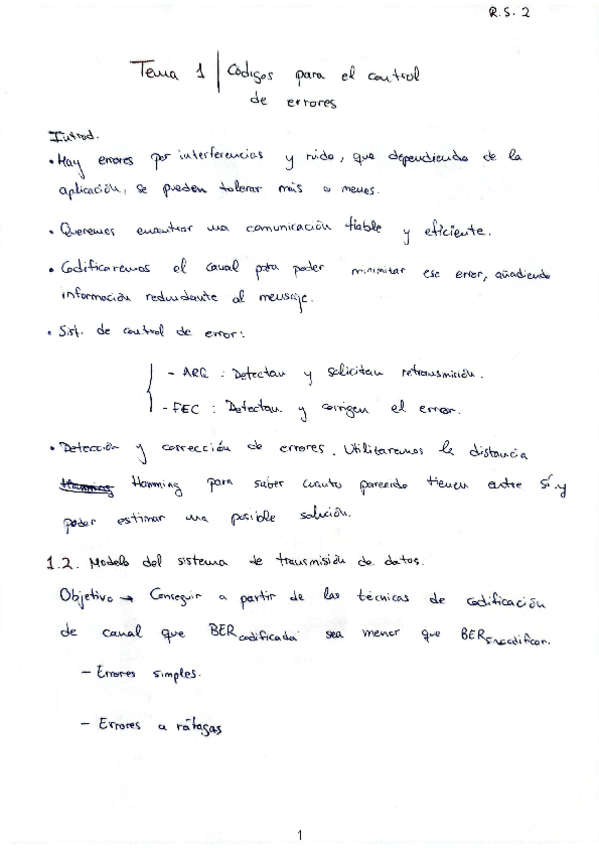 R.S. 2
Tema 1 | Códigos para el control
de errores
Introd.
• Hay errores por interferencias y ruido, que dependiendo de la
aplicación, se pueden tolerar más o menos.
• Queremos encontrar una comunicación fiable y eficiente.
• Codificaremos el canal para poder minimizar ese error, añadiendo
información redundante al mensaje.
• Sist. de control de error:
- ARQ : Detectan y solicitan retransmisión.
- FEC : Detectan y corrigen el error.
• Detección y corrección de errores. Utilizaremos la distancia
Hamming Hamming para saber cuanto parecido tienen entre sí y
poder estimar una posible solución.
1.2. Modelo del sistema de transmisión de datos.
Objetivo → Conseguir a partir de las técnicas de codificación
de canal que BER codificada sea menor que BER sincodificar.
- Errores simples.
- Errores a ráfagas
1